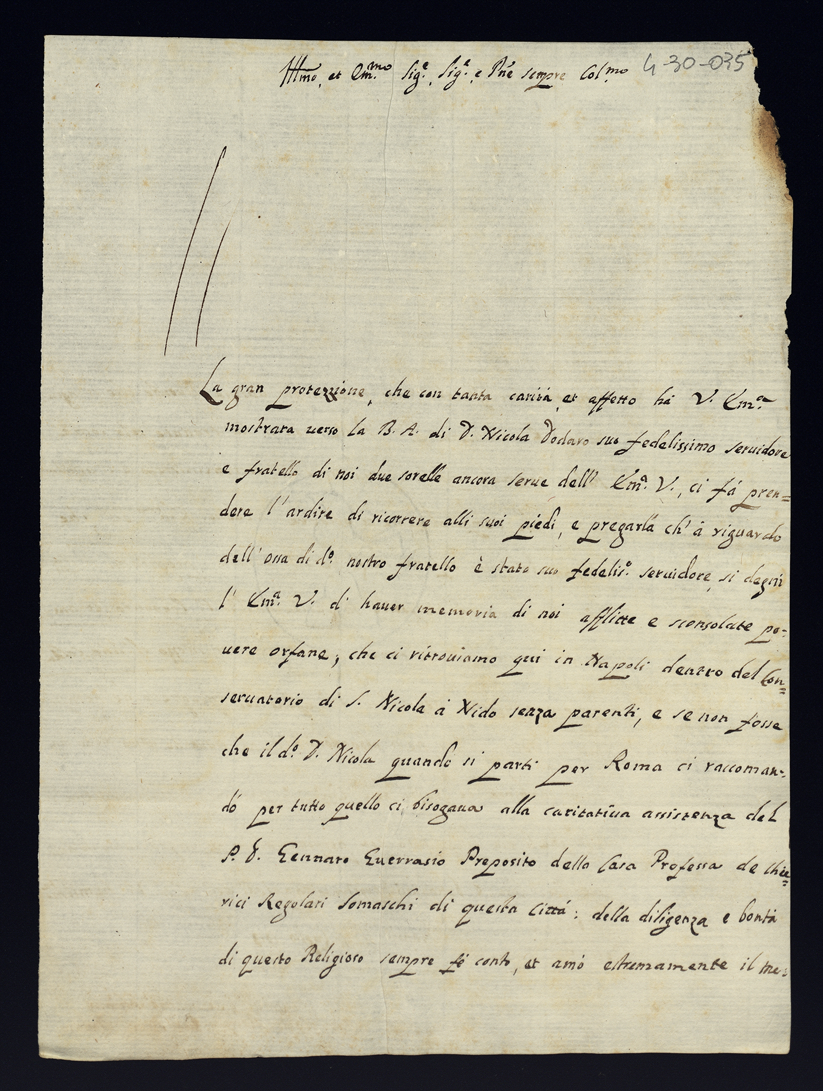 Illmo, et Em.mo Sig.e, Sig.e, e Pñe sempre Col.mo 4-30-035
La gran protezzione, che con tanta carità, et affetto hà V. Em.a
mostrata verso la B. A. di D. Nicola Dodaro suo fedelissimo seruidore
e fratello di noi due sorelle ancora serue dell' Em.a V., ci fà pren=
dere l'ardire di ricorrere alli suoi piedi, e pregarla ch' à riguardo
dell' ossa di d.o nostro fratello è stato suo fedelis.o seruidore, si degni
l' Em.a V. di hauer memoria di noi afflitte e sconsolate po-
uere orfane, che ci ritrouiamo qui in Napoli dentro del Con=
seruatorio di S. Nicola à Nido senza parenti, e se non fosse
che il d.o D. Nicola quando si parti per Roma ci raccoman-
dò per tutto quello ci bisogaua alla caritatiua assistenza del
P. D. Gennaro Guerrasio Preposito della Casa Professa de Chie=
rici Regolari Somaschi di questa Città: della diligenza e bontà
di questo Religioso sempre fè conto, et amò estremamente il me=